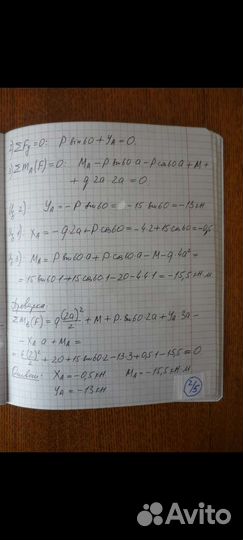 2) ΣFy=0: P sin60 + YA = 0.
3) ΣmA(F)=0: MA - P sin60 a - P cos60 a + M +
+ q 2a 2a = 0
Из 2): YA = -P sin60 = -15 sin60 = -13кН
Из 1): XA = -q 2a + P cos60 = -4·2 + 15 cos60 = -0,5
Из 3): MA = P sin60 a + P cos60 a - M - q 4a² =
= 15 sin60·1 + 15 cos60·1 - 20 - 4·4·1 = -15,5 кН.м.
Проверка
(F) = q (2a)²/2 + M + P sin60 2a + YA 3a -
- XA a + MA =
+ 20 + 15 sin60·2 - 13·3 + 0,5·1 - 15,5 = 0
Ответ: XA = -0,5кН MA = -15,5кН.м.
YA = -13кН
2/5
Avito